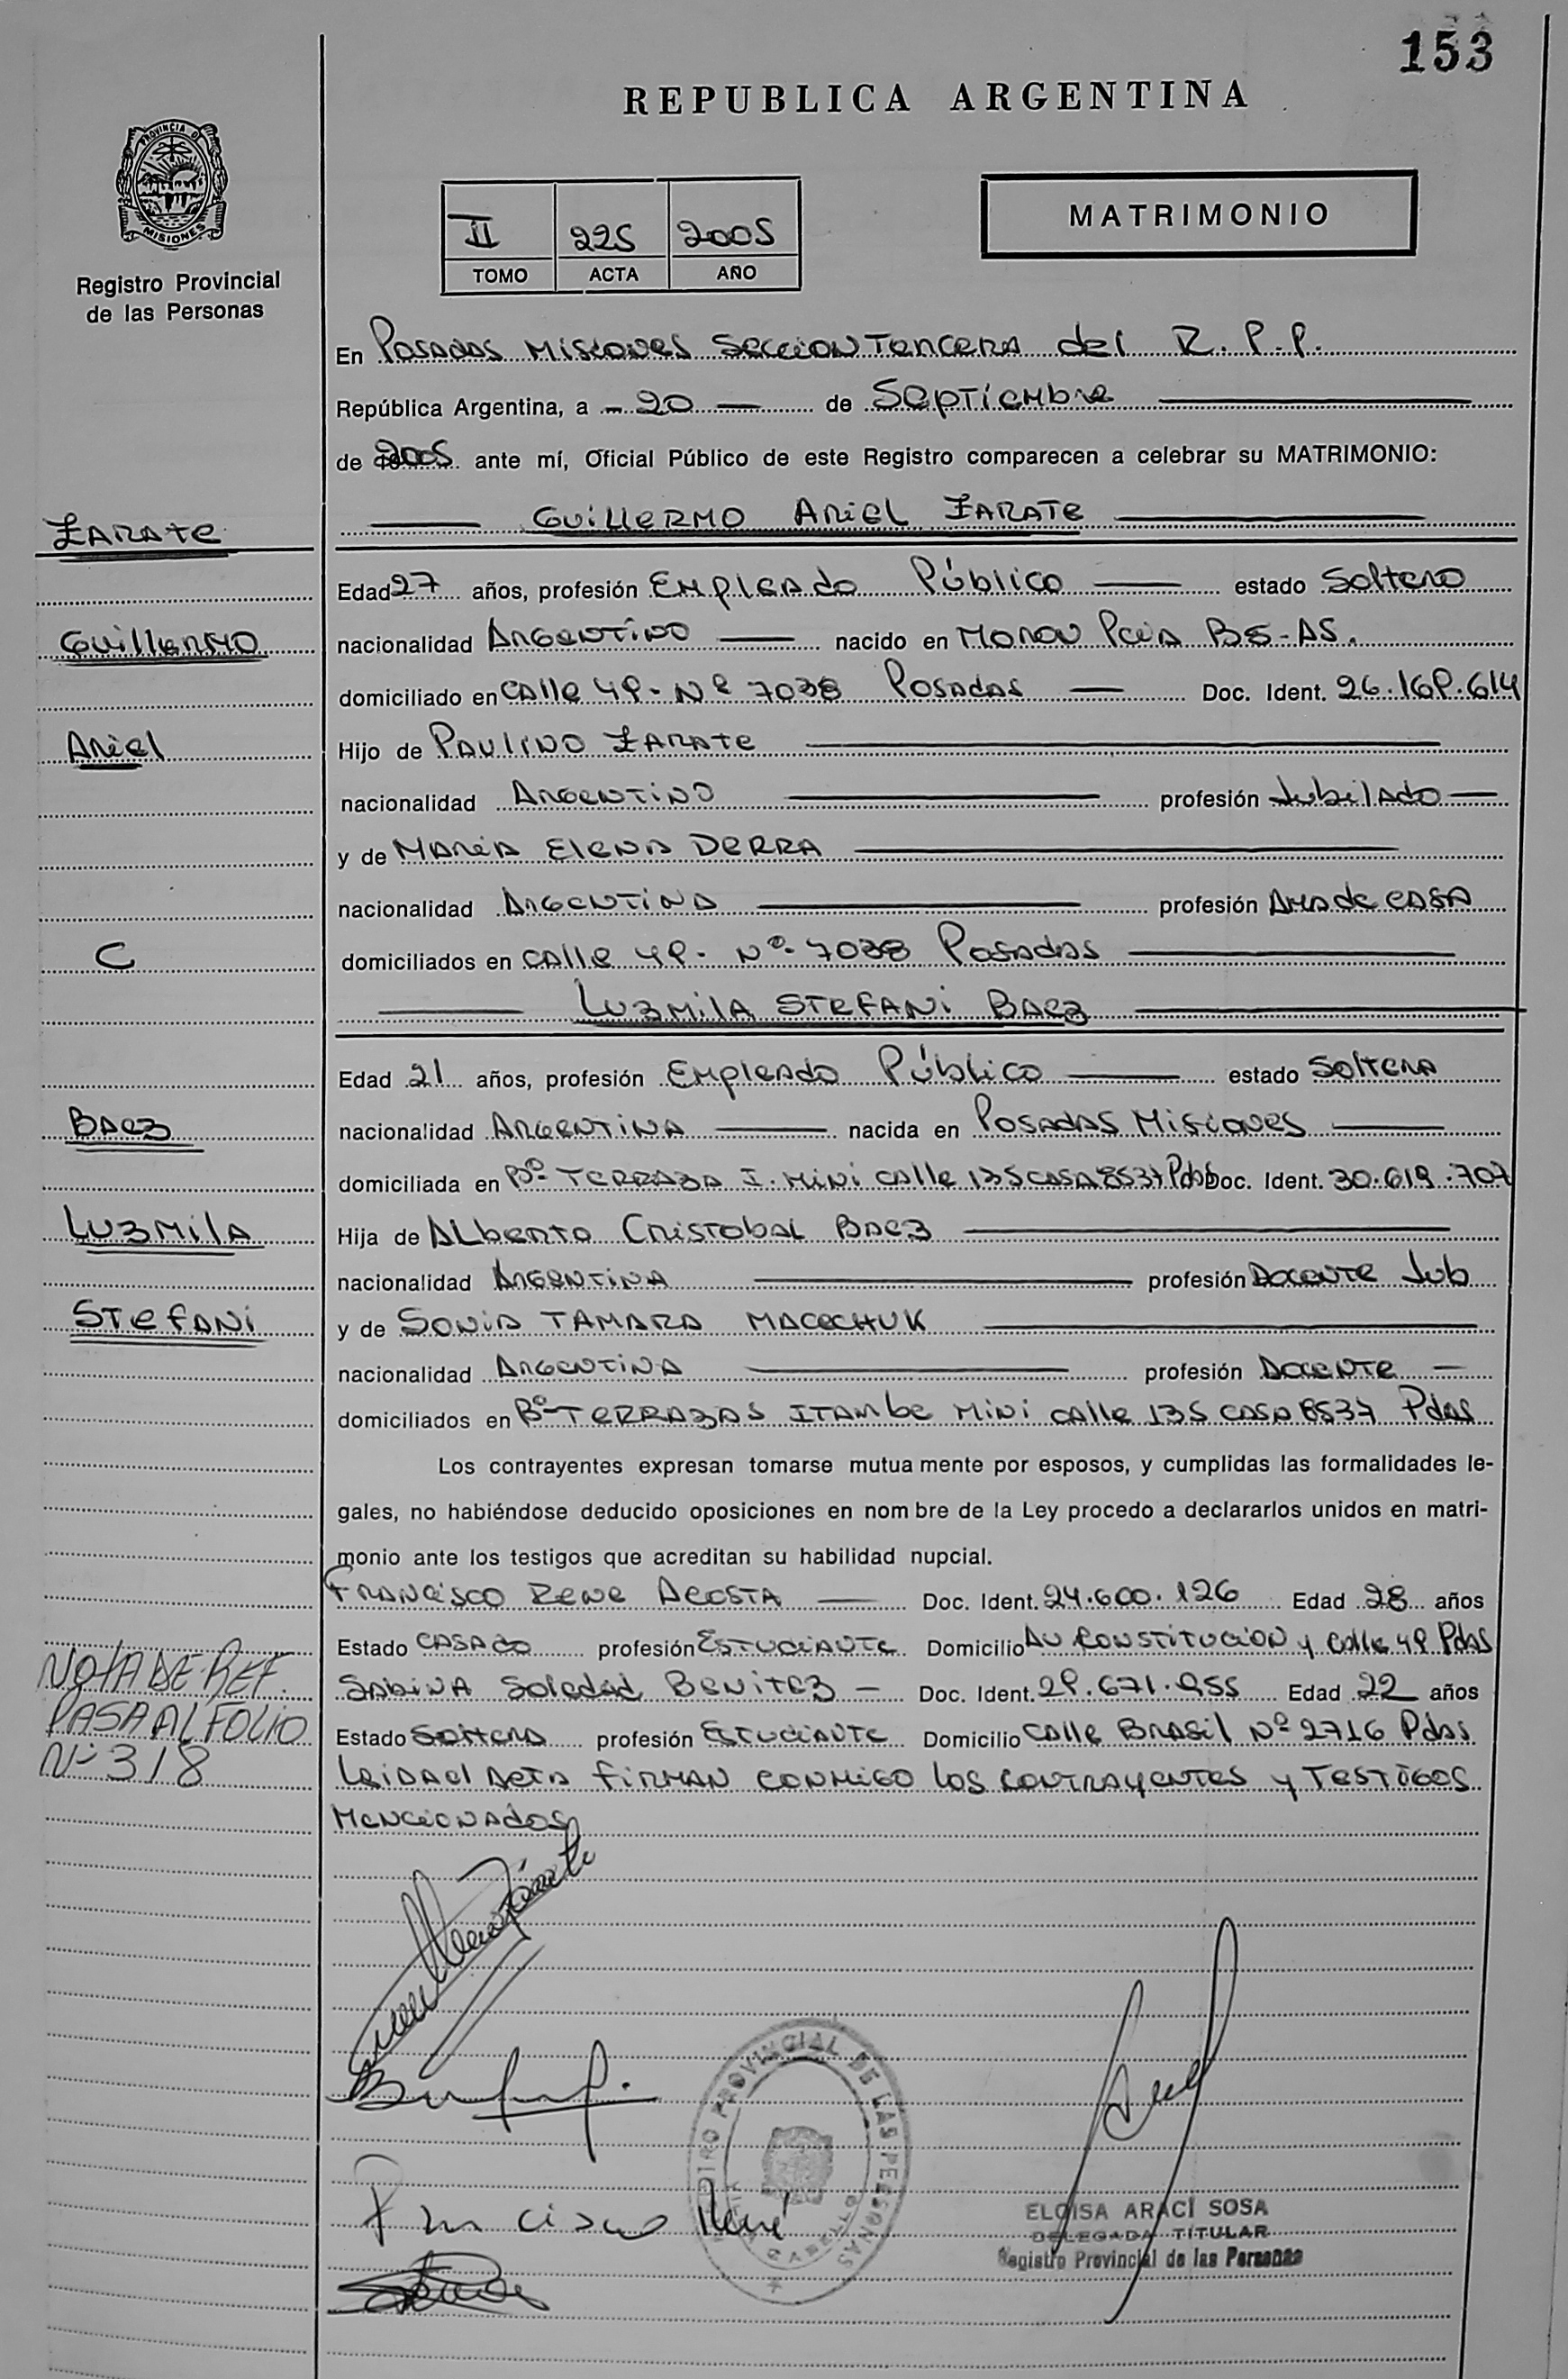 153
REPUBLICA ARGENTINA
PROVINCIA DE
MISIONES
Registro Provincial
de las Personas
II 225 2005
TOMO ACTA AÑO
MATRIMONIO
En Posadas Misiones Seccion Tercera del R.P.P.
República Argentina, a - 20 — de Septiembre
de 2005 ante mí, Oficial Público de este Registro comparecen a celebrar su MATRIMONIO:
Guillermo Ariel Zarate
Zarate
Edad 27 años, profesión Empleado Público — estado Soltero
Guillermo
nacionalidad Argentino — nacido en Moron Pcia Bs-As.
domiciliado en calle 49- Nº 7038 Posadas — Doc. Ident. 26.169.614
Ariel
Hijo de Paulino Zarate
nacionalidad Argentino profesión Jubilado —
y de Maria Elena Derra
nacionalidad Argentina profesión Ama de casa
C
domiciliados en calle 49- Nº- 7038 Posadas
Luzmila Stefani Baez
Edad 21 años, profesión Empleado Público — estado Soltera
Baez
nacionalidad Argentina — nacida en Posadas Misiones —
domiciliada en Bº Terraza I. Mini calle 135 casa 8537 Pdas Doc. Ident. 30.619.707
Luzmila
Hija de Alberto Cristobal Baez
nacionalidad Argentina profesión Docente Jub
Stefani
y de Sonia Tamara Macechuk
nacionalidad Argentina profesión Docente —
domiciliados en Bº Terrazas Itambe Mini calle 135 casa 8537 Pdas
Los contrayentes expresan tomarse mutuamente por esposos, y cumplidas las formalidades le-
gales, no habiéndose deducido oposiciones en nombre de la Ley procedo a declararlos unidos en matri-
monio ante los testigos que acreditan su habilidad nupcial.
Francisco Rene Acosta — Doc. Ident. 24.600.126 Edad 28 años
Estado casado profesión Estudiante Domicilio Av Constitucion y calle 49 Pdas
Sabina Soledad Benitez — Doc. Ident. 29.671.955 Edad 22 años
Estado Soltera profesión Estudiante Domicilio calle Brasil Nº 2716 Pdas
NOTA DE REF.
PASA AL FOLIO
Nº 318
Leida el acta firman conmigo los contrayentes y testigos
mencionados
REGISTRO PROVINCIAL DE LAS PERSONAS
Francisco René
ELOISA ARACÍ SOSA
DELEGADA TITULAR
Registro Provincial de las Personas